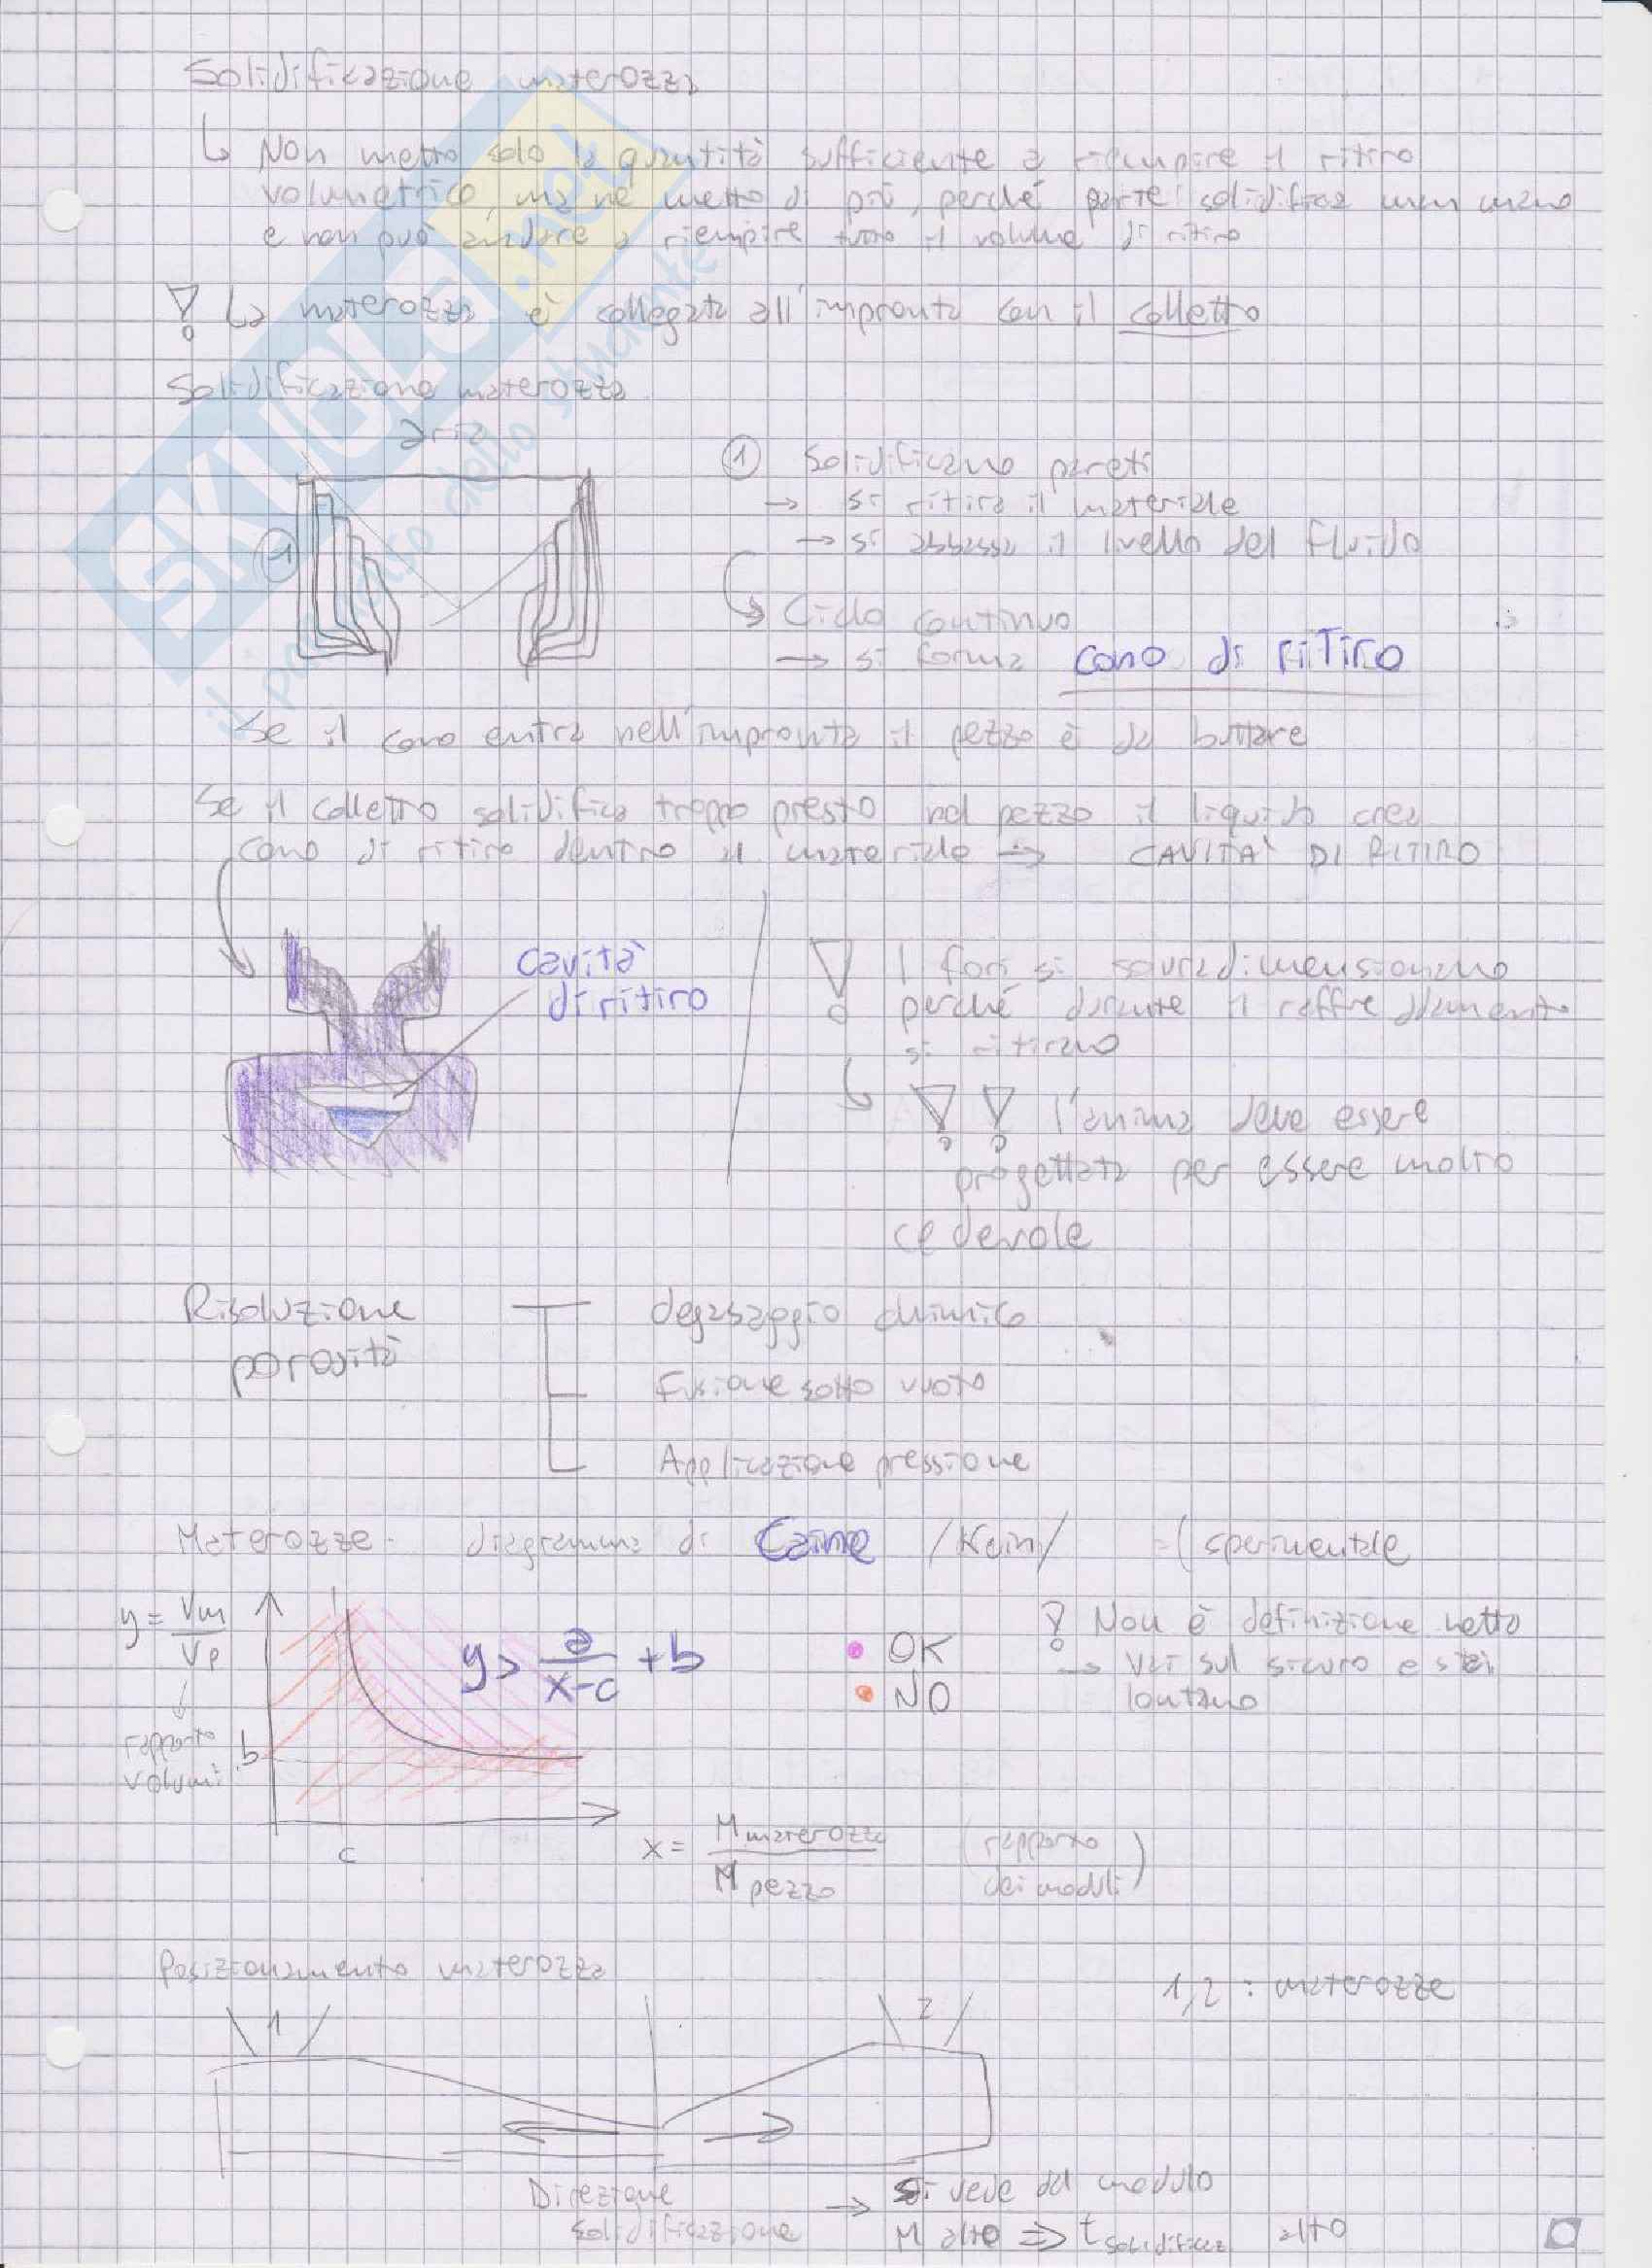 Solidificazione materozza
↳ Non metto solo la quantità sufficiente a riempire il ritiro
volumetrico, ma ne metto di più, perché parte solidifica man mano
e non può andare a riempire tutto il volume di ritiro
! La materozza è collegata all'impronta con il colletto
Solidificazione materozza
aria
1
① Solidificano pareti
→ si ritira il materiale
→ si abbassa il livello del fluido
↳ Ciclo continuo
→ si forma cono di ritiro
Se il cono entra nell'impronta il pezzo è da buttare
Se il colletto solidifica troppo presto nel pezzo il liquido crea
cono di ritiro dentro il materiale → CAVITA' DI RITIRO
cavità
di ritiro
! I fori si sovradimensionano
perché durante il raffreddamento
si ritirano
↳ !! l'anima deve essere
progettata per essere molto
cedevole
Risoluzione
porosità
degasaggio chimico
Fusione sotto vuoto
Applicazione pressione
Materozze - diagramma di Caine /Kein/ = (sperimentale
y = Vm/Vp
↓
rapporto
volumi
b
c
y > a/(x-c) + b
• OK
• NO
! Non è definizione netta
→ Vai sul sicuro e stai
lontano
x = M materozza / M pezzo (rapporto dei moduli)
Posizionamento materozza
1,2 : materozze
1
2
Direzione
solidificazione
→ Si vede dal modulo
M alto ⇒ t solidificaz alto
SKUOLA.net
il paradiso dello studente